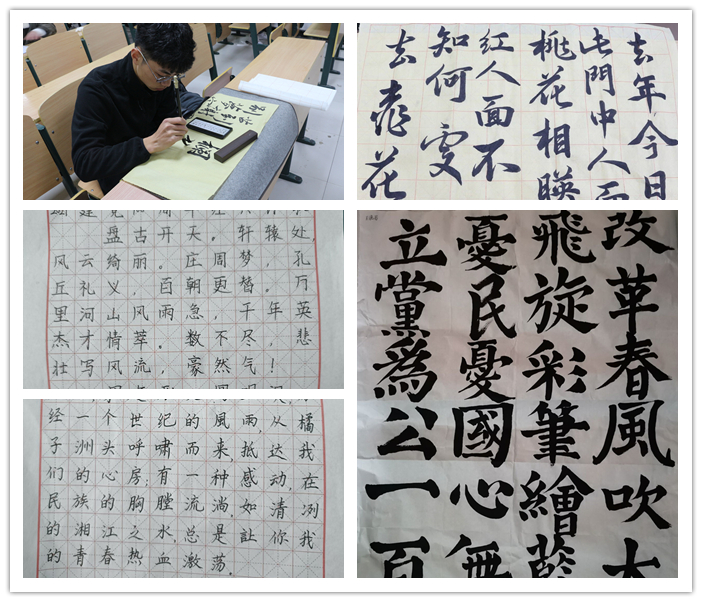 去年今日
此門中人面
桃花相暎
红人面不
知何
去桃花
盘古开天。轩辕处,
风云绮丽。庄周梦,孔
丘礼义,百朝更替。万
里河山风雨急,千年英
杰才情萃。数不尽,悲
壮写风流,豪然气!
经一个世纪的風雨,从橘
子洲头呼啸而来抵达我
们的心房;有一种感动,在
民族的胸膛流淌,如清冽
的湘江之水,总是让你我
的青春热血激荡。
改革春風吹大
飛旋彩筆繪藍
憂民憂國心無
立黨為公一百